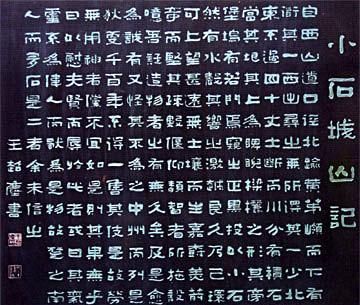 小石城山記
自西山道口徑北踰黃茅嶺而下有
道其一西出尋之無所得其一少北
東不過四十丈土斷而川分有積石
當其垠其上為睥睨梁欐之形其旁
堡塢有若門焉窺之正黑投以小石
然有水聲其響之激越良久乃已環
可上望甚遠無土壤而生嘉樹美箭
奇而堅其疏數偃仰類智者所施設
噫吾疑造物者之有無久矣及是愈
為誠有又怪其不為之中州而列是
狄更千百年不得一售其伎是固勞
無用神者儻不宜如是則其果無乎
曰以慰夫賢而辱於此者或曰其氣
靈不為偉人而獨為是物故楚之南
人而多石是二者余未信之
王 書